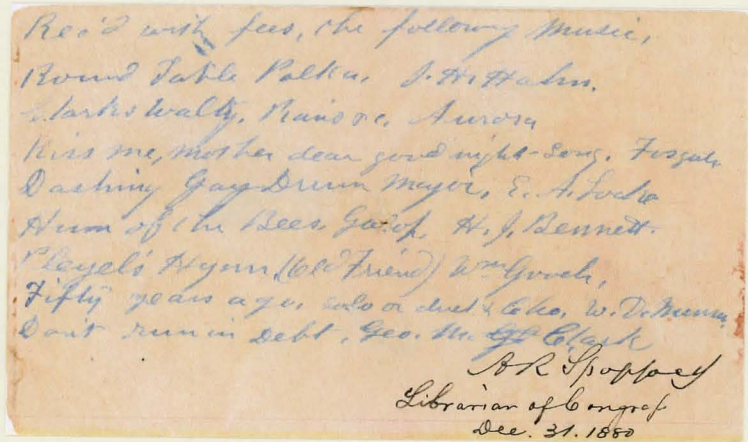 Rec'd with fees, the following Music,
Round Table Polka, J. H. Hahn.
Clarks Waltz. Aurora
Kiss me, mother dear good night - Song.
Dashing Gay Drum Major, E. A. Locke
Hum of the Bees. Galop. H. J. Bennett.
Pleyel's Hymn (Old Friend) Wm Gooch,
Fifty years ago, solo or duet & Cho. W. D.
Don't run in Debt, Geo. M. Clark
A R Spofford
Librarian of Congress
Dec. 31. 1880